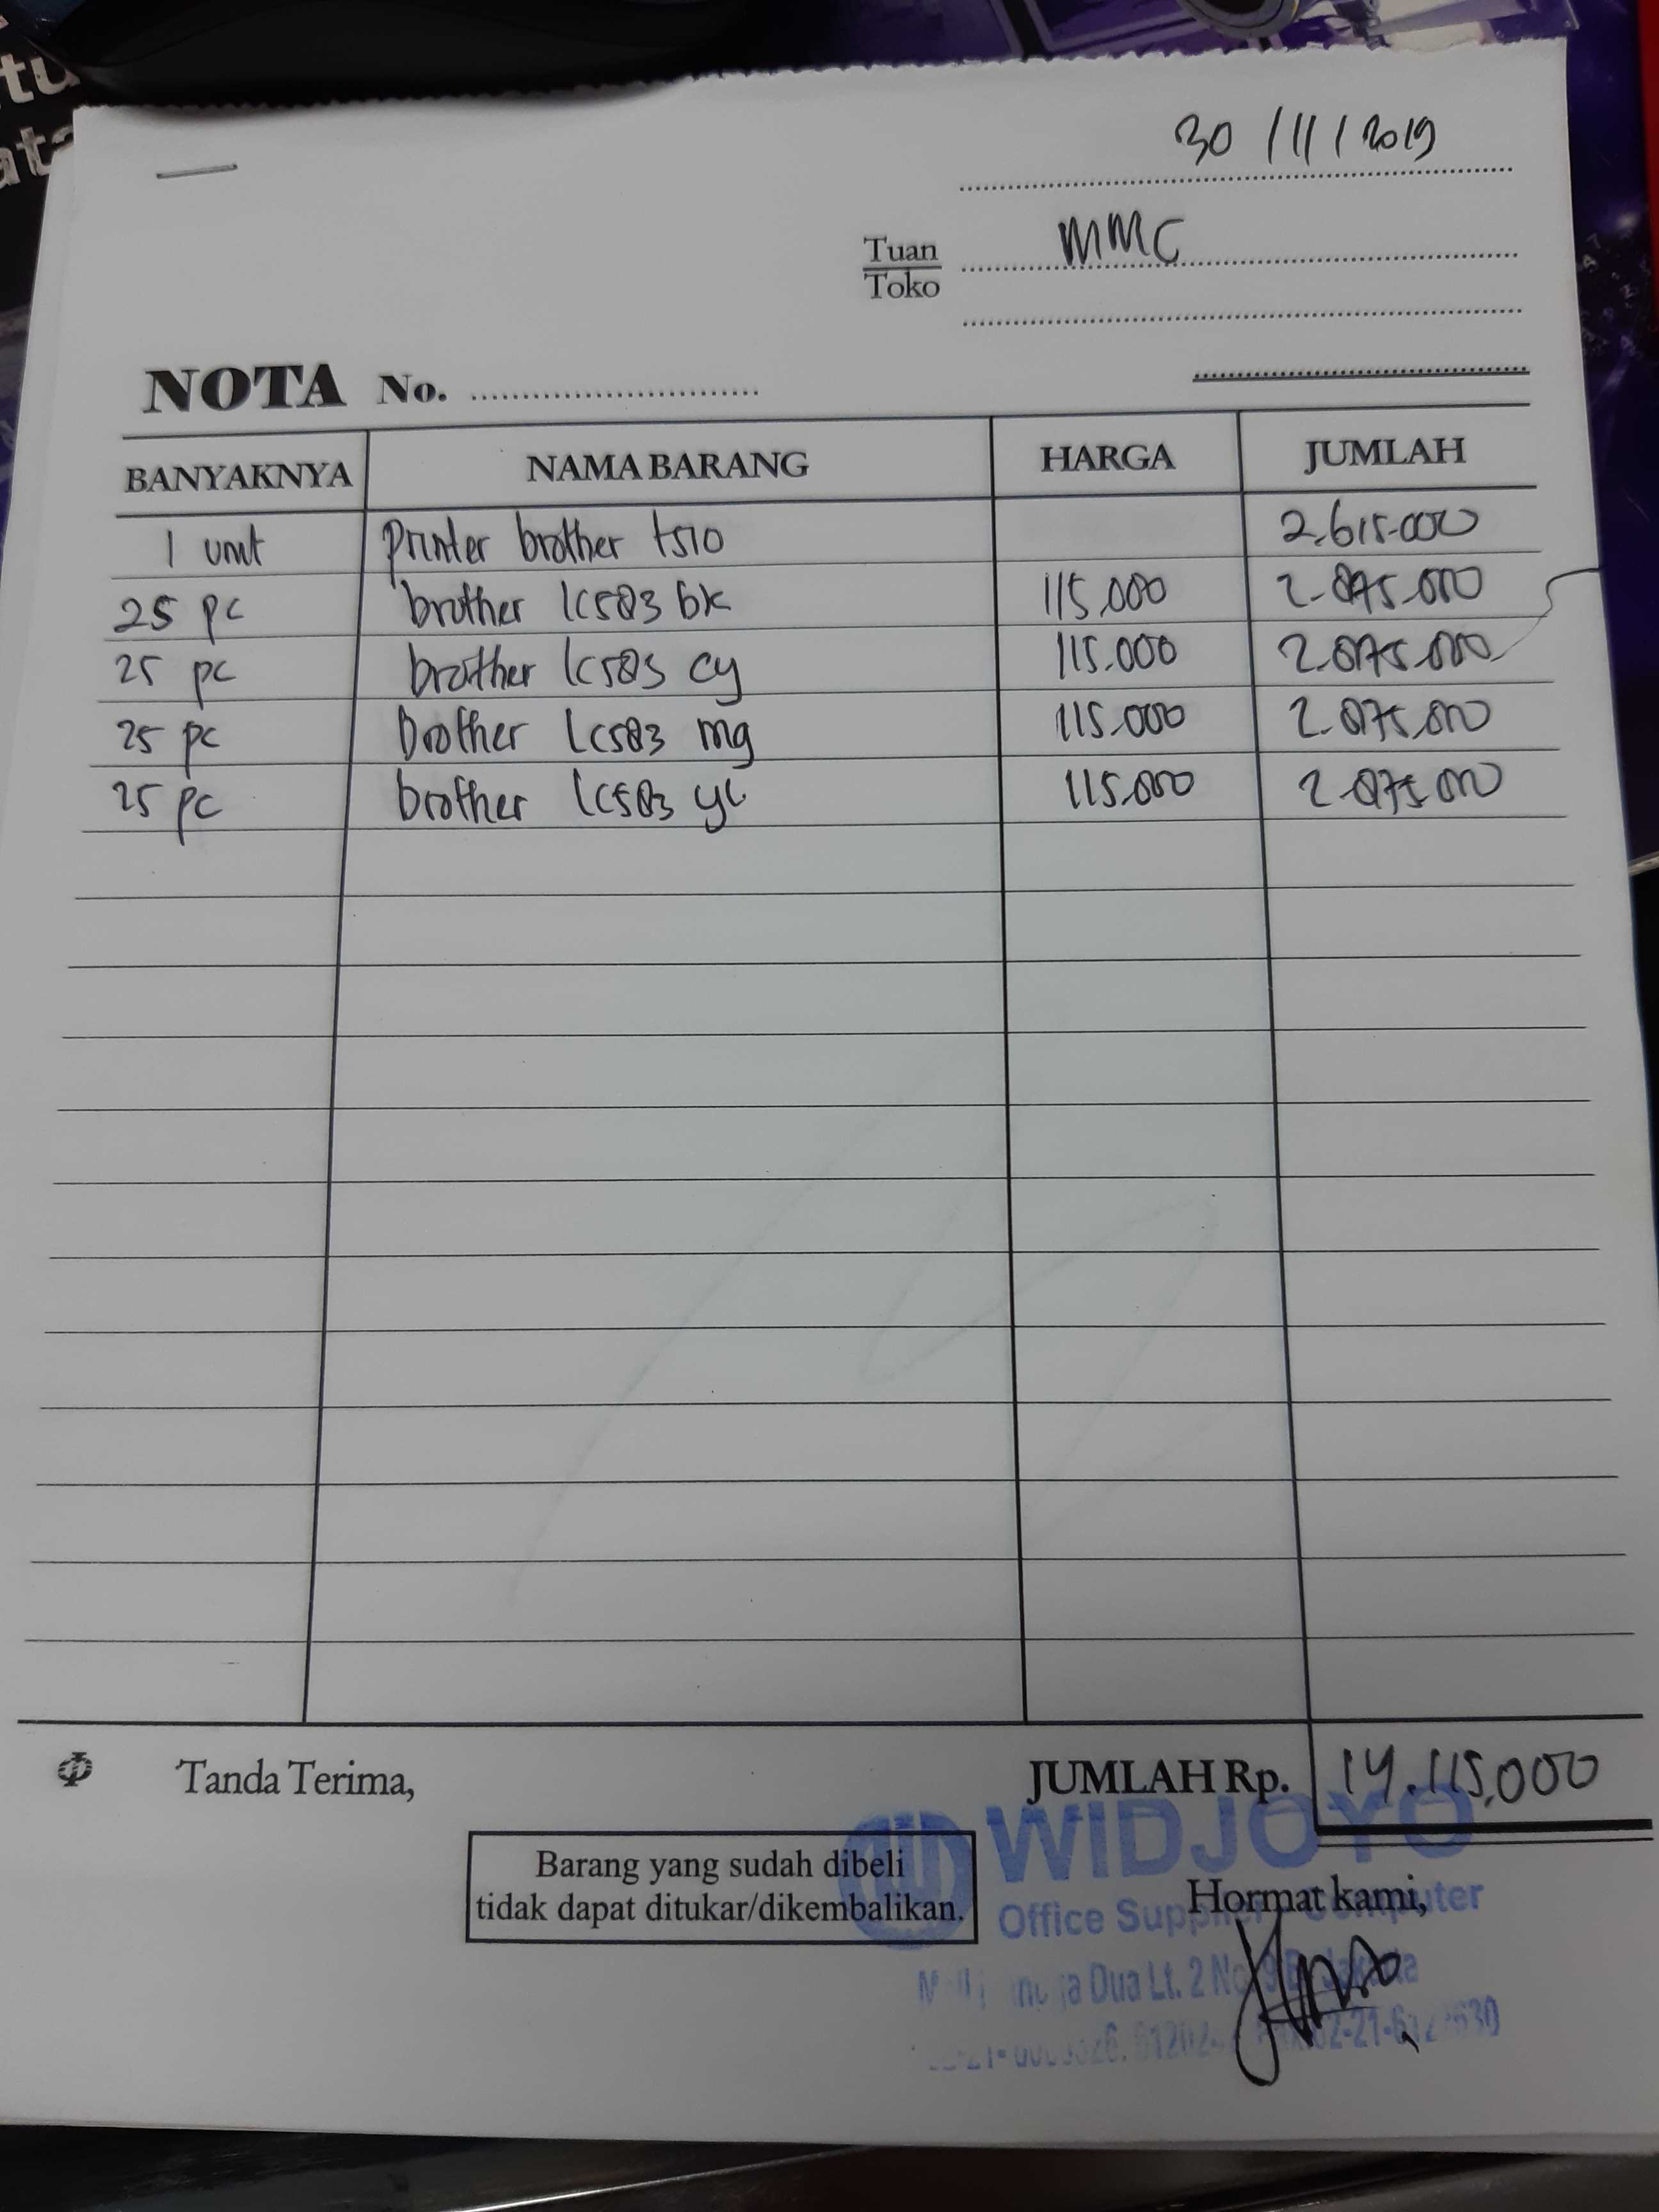 30/11/2019
Tuan
Toko
MMC
NOTA No.
BANYAKNYA NAMA BARANG HARGA JUMLAH
1 unit Printer brother t510 2.615.000
25 pc brother lc583 bk 115.000 2.875.000
25 pc brother lc583 cy 115.000 2.875.000
25 pc brother lc583 mg 115.000 2.875.000
25 pc brother lc583 yl 115.000 2.875.000
Tanda Terima, JUMLAH Rp. 14.115.000
Barang yang sudah dibeli
tidak dapat ditukar/dikembalikan.
WIDJOYO
Hormat kami,
Office Computer
Dua Lt. 2 No